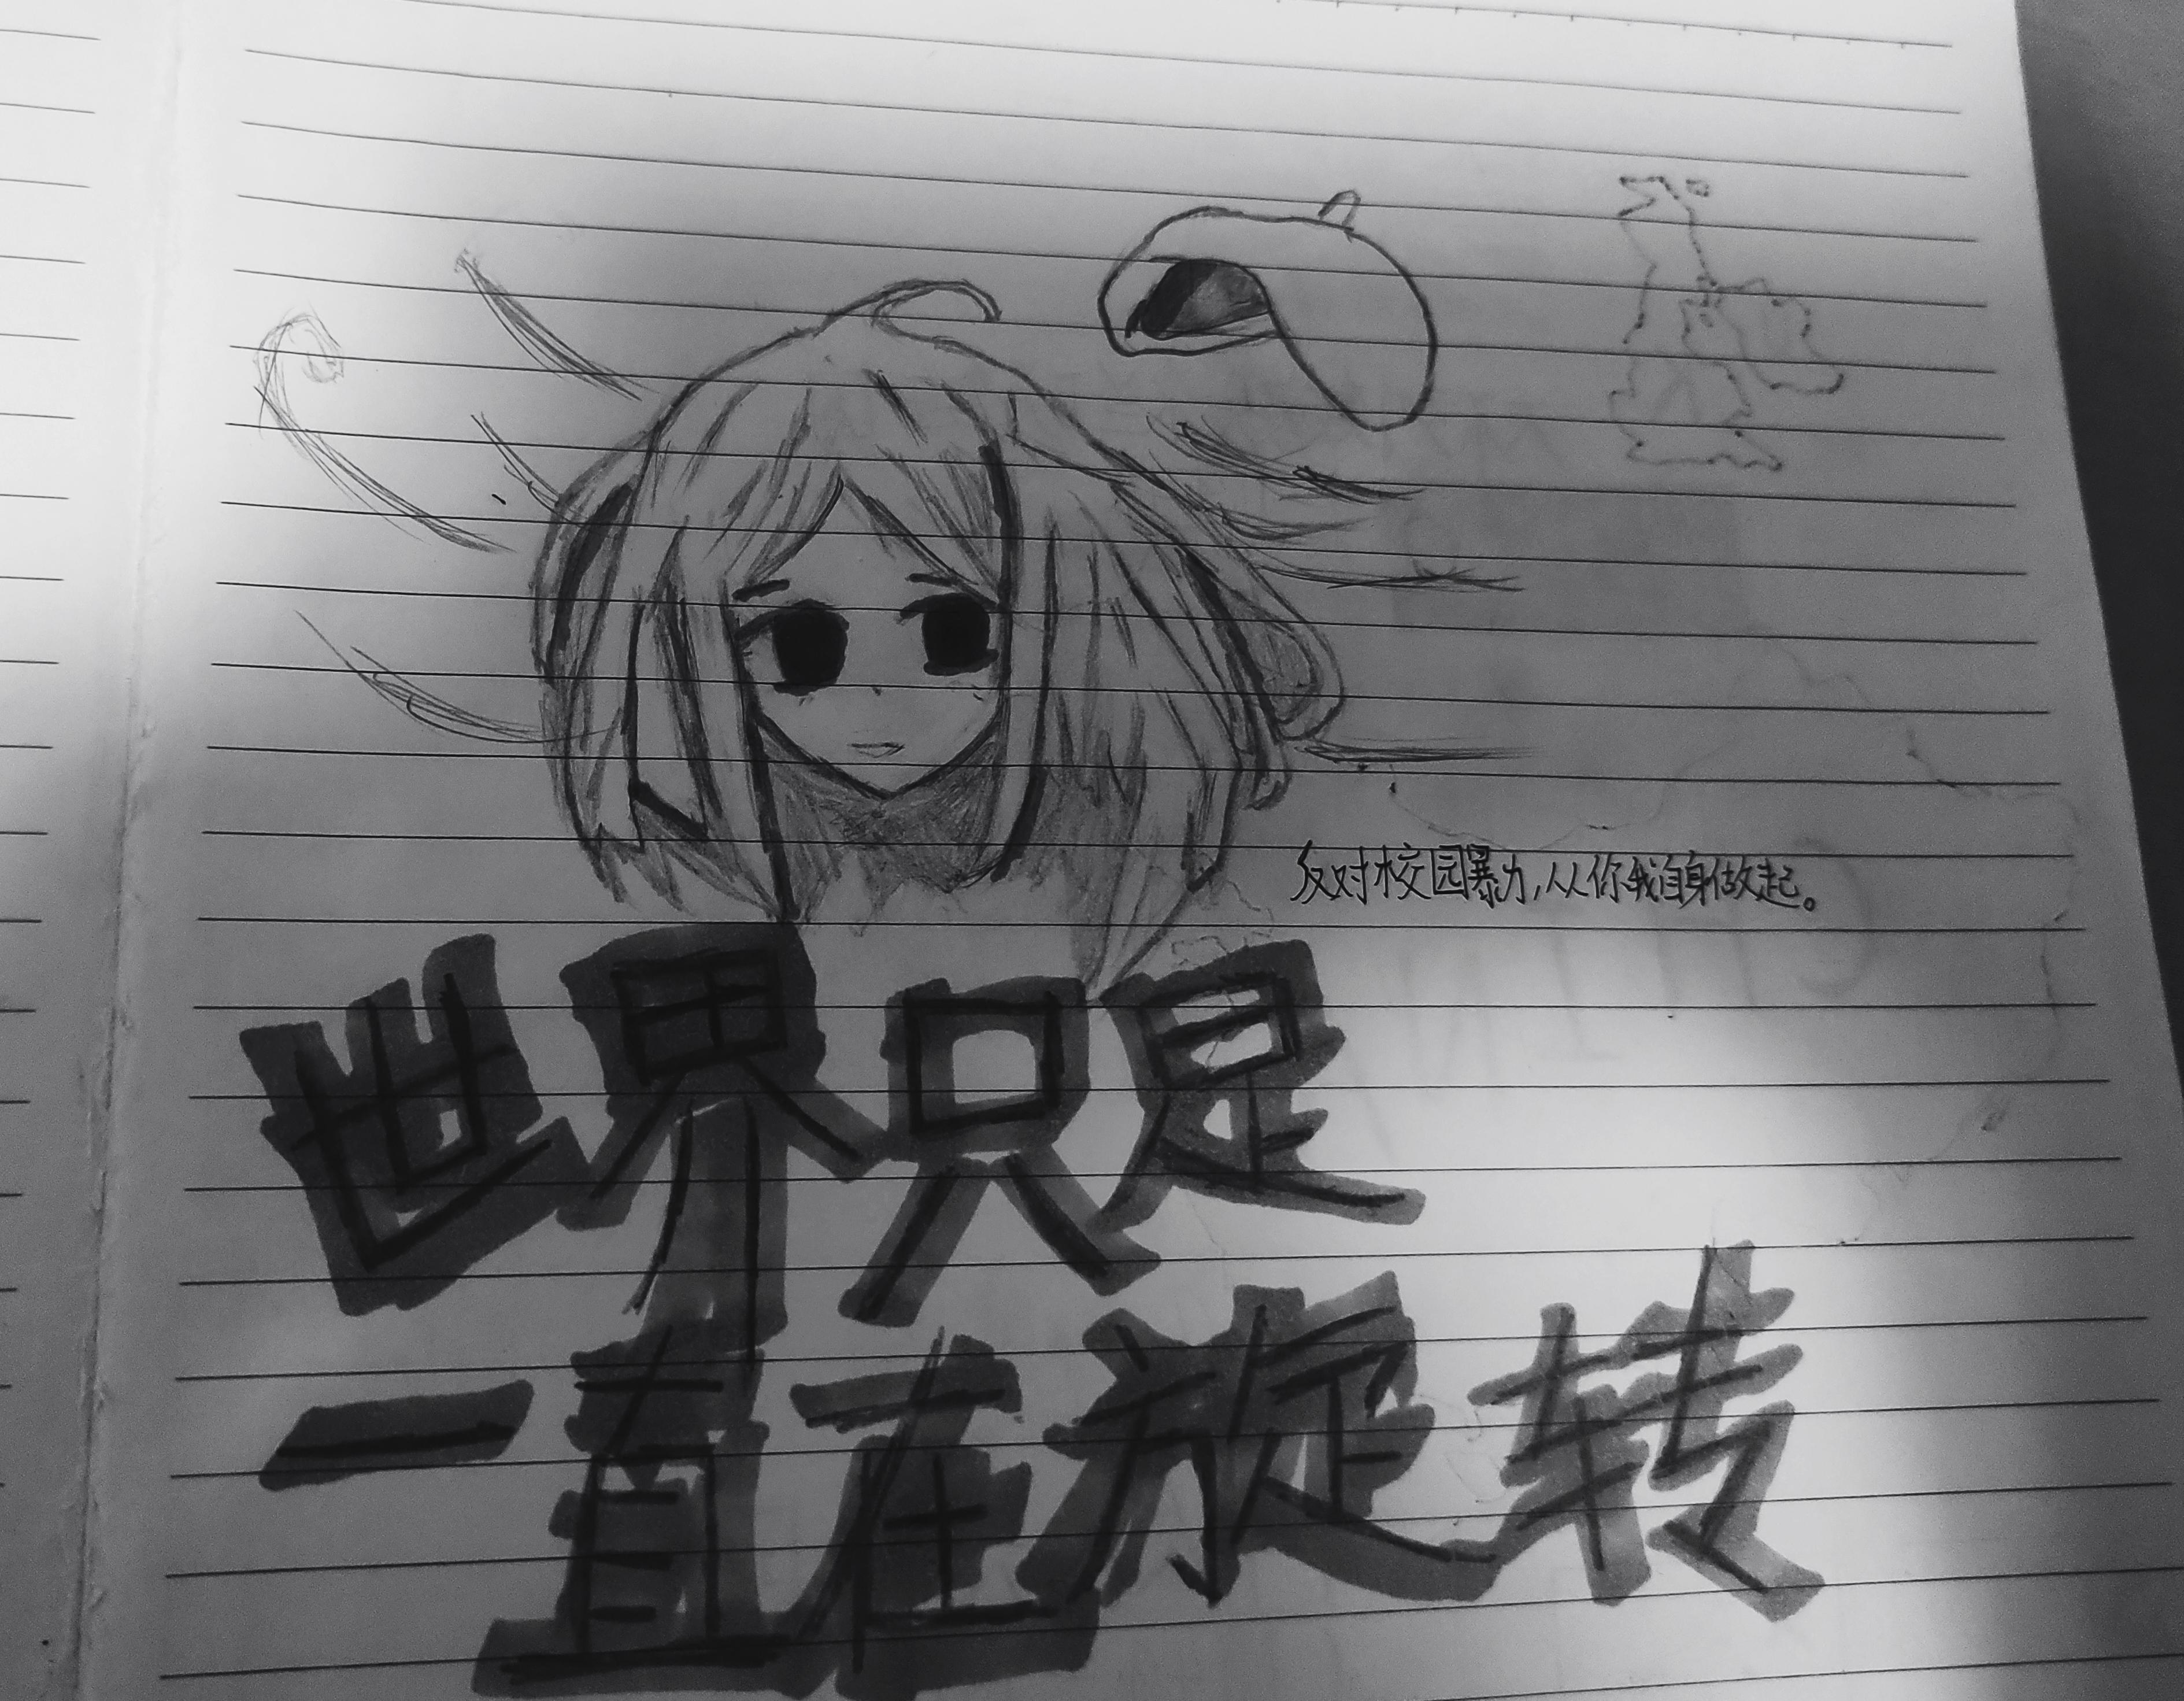 反对校园暴力,从你我自身做起。
世界只是
一直在旋转